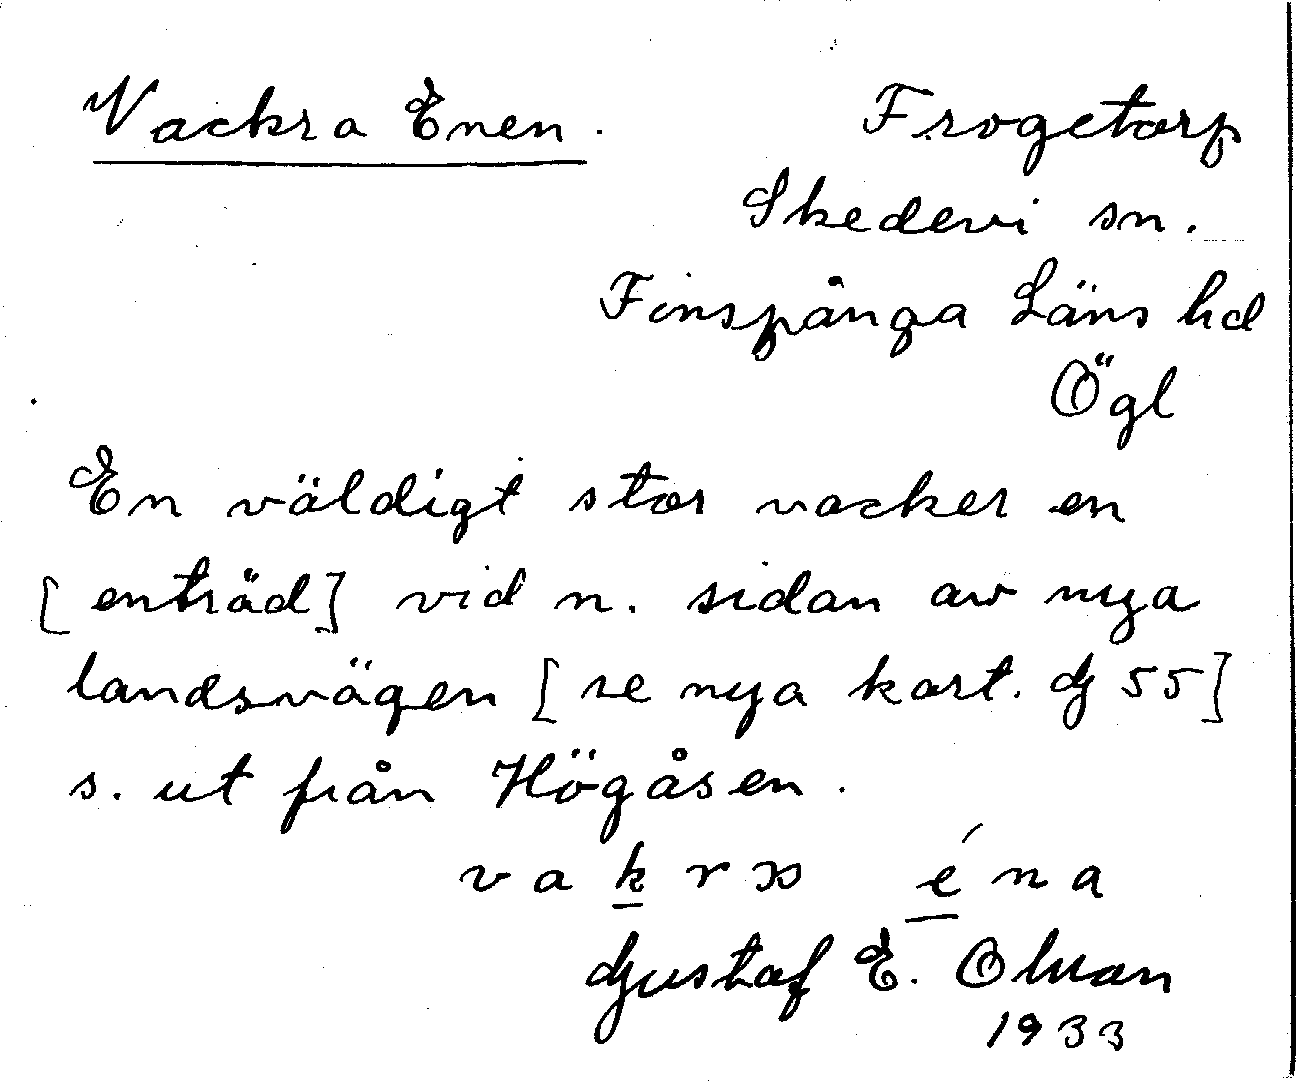 Vackra Enen.
Frogetorp
Skedevi sn.
Finspånga Läns hd
Ögl
En väldigt stor vacker en
[enträd] vid n. sidan av nya
landsvägen [se nya kart. G 55]
s. ut från Högåsen.
vakrꝏ éna
Gustaf E. Olsson
1933